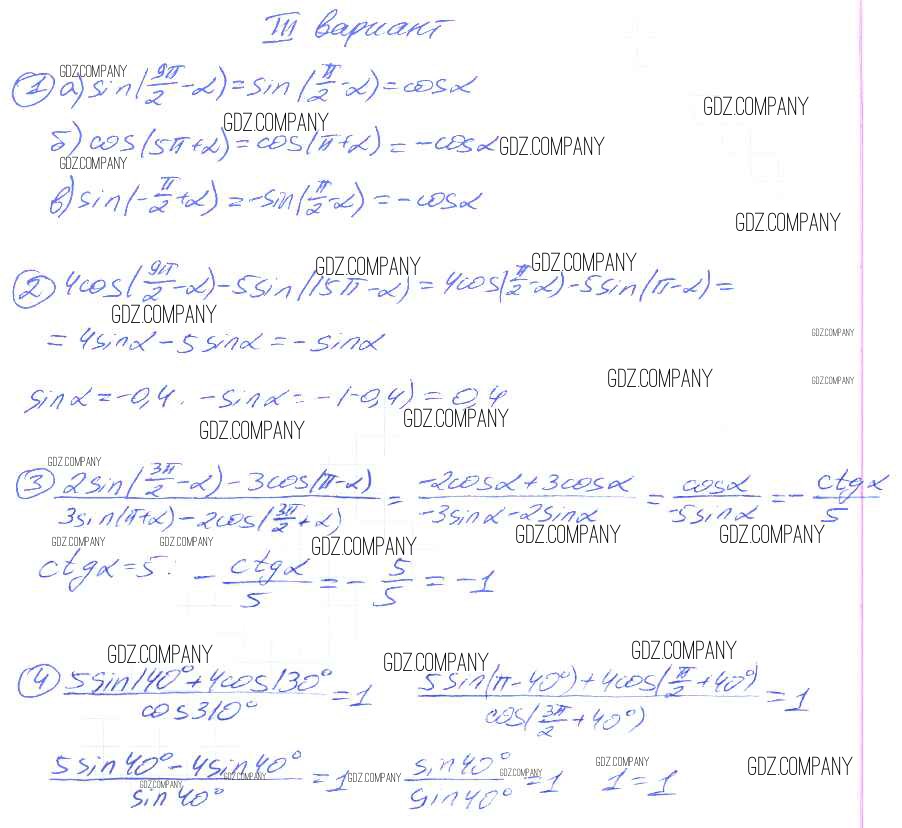 III вариант
GDZ.COMPANY
① а) sin(9π/2 - α) = sin(π/2 - α) = cosα
GDZ.COMPANY
GDZ.COMPANY
б) cos(5π + α) = cos(π + α) = -cosα GDZ.COMPANY
GDZ.COMPANY
в) sin(-π/2 + α) = -sin(π/2 - α) = -cosα
GDZ.COMPANY
GDZ.COMPANY GDZ.COMPANY
② 4cos(9π/2 - α) - 5sin(15π - α) = 4cos(π/2 - α) - 5sin(π - α) =
GDZ.COMPANY
= 4sinα - 5sinα = -sinα
GDZ.COMPANY
GDZ.COMPANY GDZ.COMPANY
sinα = -0,4. -sinα = -(-0,4) = 0,4
GDZ.COMPANY GDZ.COMPANY
GDZ.COMPANY
③ (2sin(3π/2 - α) - 3cos(π - α))/(3sin(π + α) - 2cos(3π/2 + α)) = (-2cosα + 3cosα)/(-3sinα - 2sinα) = cosα/(-5sinα) = -ctgα/5
GDZ.COMPANY GDZ.COMPANY GDZ.COMPANY GDZ.COMPANY GDZ.COMPANY
ctgα = 5: -ctgα/5 = -5/5 = -1
GDZ.COMPANY GDZ.COMPANY GDZ.COMPANY
④ (5sin140° + 4cos130°)/cos310° = 1 (5sin(π - 40°) + 4cos(π/2 + 40°))/cos(3π/2 + 40°) = 1
(5sin40° - 4sin40°)/sin40° = 1 GDZ.COMPANY sin40°/sin40° = 1 1 = 1
GDZ.COMPANY GDZ.COMPANY GDZ.COMPANY GDZ.COMPANY GDZ.COMPANY